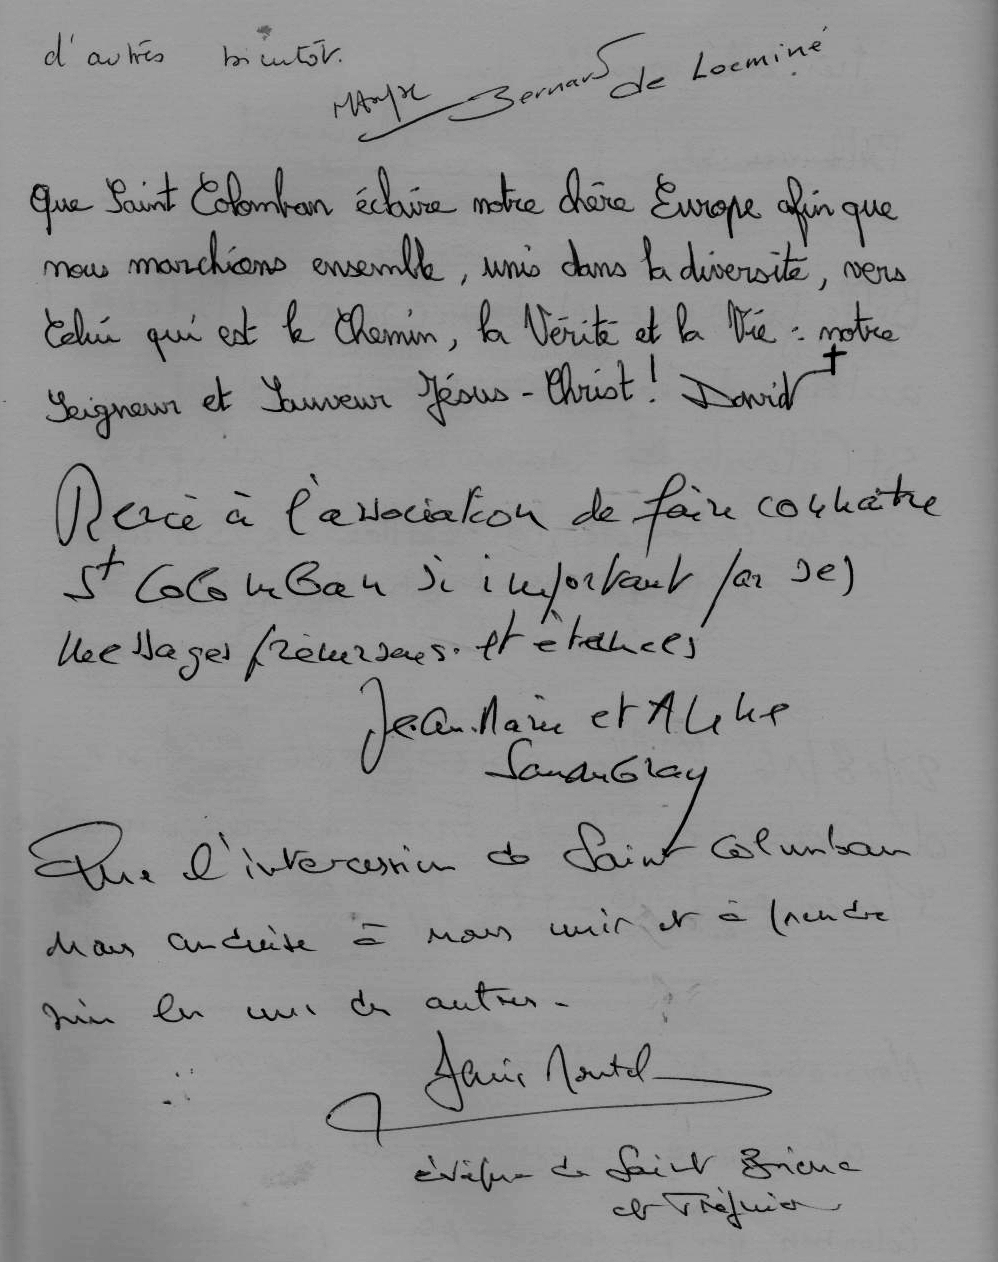 d'autres bientôt.
Bernard de Locminé
Que Saint Colomban éclaire notre chère Europe afin que
nous marchions ensemble, unis dans la diversité, vers
Celui qui est le Chemin, la Vérité et la Vie : notre
Seigneur et Sauveur Jésus-Christ ! David
Merci à l'association de faire connaître
St Colomban si important par ses
messages précurseurs et
Jean-Marie et
Que l'intercession de Saint Colomban
nous conduise à nous unir et à prendre
soin les uns des autres -
Denis Moutel
évêque de Saint Brieuc
et Tréguier